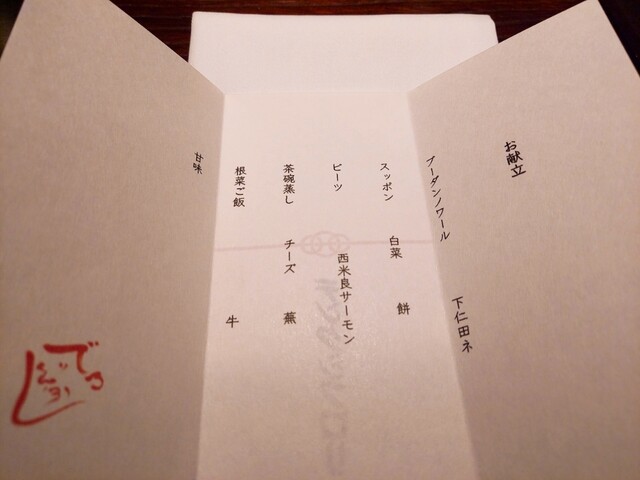 お献立
ブーダンノワール 下仁田ネ
スッポン 白菜 餅
ビーツ 西米良サーモン
茶碗蒸し チーズ 蕪
根菜ご飯 牛
甘味